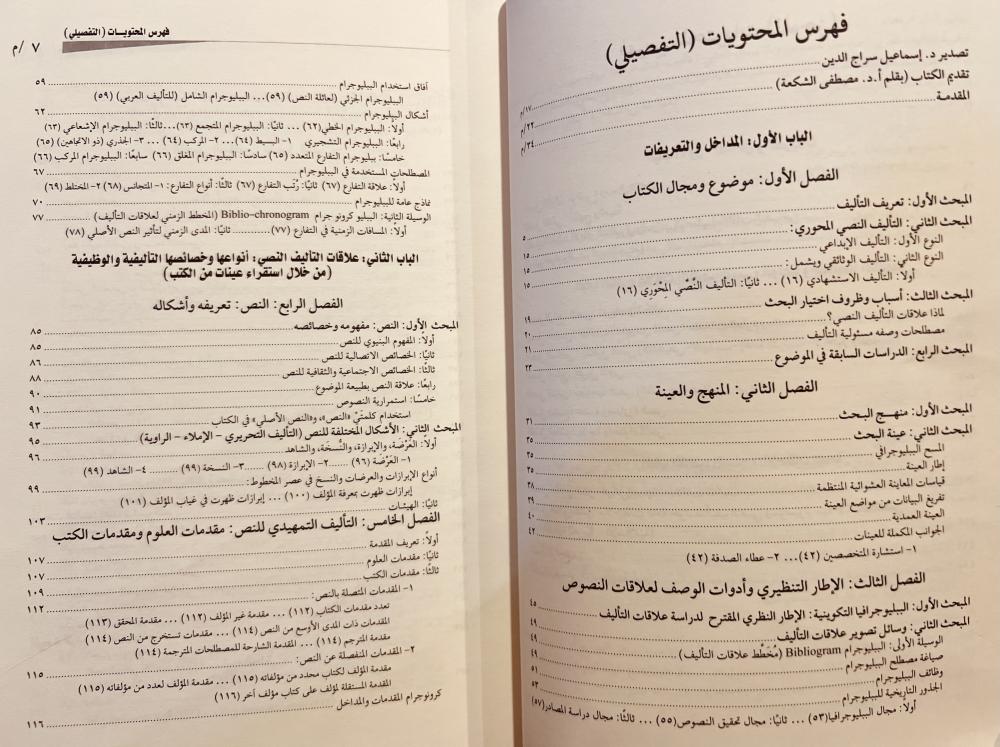 فهرس المحتويات (التفصيلي)
تصدير د. إسماعيل سراج الدين ١٧/م
تقديم الكتاب (بقلم أ.د. مصطفى الشكعة) ٢٢/م
المقدمة ٣٤/م
الباب الأول: المداخل والتعريفات
الفصل الأول: موضوع ومجال الكتاب
المبحث الأول: تعريف التأليف
المبحث الثاني: التأليف النصي المحوري: ٥
النوع الأول: التأليف الإبداعي ١٥
النوع الثاني: التأليف الوثائقي ويشمل: ١٥
أولاً: التأليف الاستشهادي (١٦) ... ثانيًا: التأليف النَّصِّي المِحْوَرِي (١٦)
المبحث الثالث: أسباب وظروف اختيار البحث ١٩
لماذا علاقات التأليف النصي؟ ٢٠
مصطلحات وصفه مسئولية التأليف ٢١
المبحث الرابع: الدراسات السابقة في الموضوع ٢٣
الفصل الثاني: المنهج والعينة
المبحث الأول: منهـج البحث ٣١
المبحث الثاني: عينة البحث ٣٥
المسح الببليوجرافي
إطار العينة ٣٥
قياسات المعاينة العشوائية المنتظمة ٣٨
تفريغ البيانات من مواضع العينة ٣٩
العينة العمدية ٤٠
الجوانب المكملة للعينات ٤٢
١- استشارة المتخصصين (٤٢)... ٢- عطاء الصدفة (٤٢)
الفصل الثالث: الإطار التنظيري وأدوات الوصف لعلاقات النصوص
المبحث الأول: الببليوجرافيا التكوينية: الإطار النظري المقترح لدراسة علاقات التأليف ٤٥
المبحث الثاني: وسائل تصوير علاقات التأليف ٤٩
الوسيلة الأولى: الببليوجرام Bibliogram (مُخَطَّط علاقات التأليف) ٤٩
صياغة مصطلح الببليوجرام ٥١
وظائف الببليوجرام
الجذور التاريخية للببليوجرام ٥٣
أولاً: مجال الببليوجرافيا(٥٣) ... ثانيًا: مجال تحقيق النصوص(٥٥) ... ثالثًا: مجال دراسة المصادر(٥٧)
فهرس المحتويـات (التفصيلي) ٧ /م
آفاق استخدام الببليوجرام ٥٩
الببليوجرام الجزئي (لعائلة النص) (٥٩)... الببليوجرام الشامل (للتأليف العربي) (٥٩)
أشكال الببليوجرام ٦٢
أولاً: الببليوجرام الخطي(٦٢) ... ثانيًا: الببليوجرام المتجمع (٦٣)...ثالثًا: الببليوجرام الإشعاعي (٦٣)
رابعًا: الببليوجرام التشجيري ١- البسيط (٦٤)... ٢- المركب (٦٤) ... ٣- الجذري (ذو الاتجاهين) (٦٥)
خامسًا: ببليوجرام التفارع المتعدد (٦٥) سادسًا: الببليوجرام المغلق (٦٦) سابعًا: الببليوجرام المركب (٦٦)
المصطلحات المستخدمة في الببليوجرام ٦٧
أولاً: علاقة التفارع (٦٧) ثانيًا: رُتَب التفارع (٦٧) ثالثًا: أنواع التفارع: ١- المتجانس (٦٨) ٢- المختلط (٦٩)
نماذج عامة للببليوجرام ٧٠
الوسيلة الثانية: الببليو كرونو جرام Biblio-chronogram (المخطط الزمني لعلاقات التأليف) ٧٧
أولاً: المسافات الزمنية في التفارع (٧٧) ... ثانيًا: المدى الزمني لتأثير النص الأصلي (٧٨)
الباب الثاني: علاقات التأليف النصي: أنواعها وخصائصها التأليفية والوظيفية
(من خلال استقراء عينات من الكتب)
الفصل الرابع: النص: تعريفه وأشكاله
المبحث الأول: النص: مفهومه وخصائصه ٨٥
أولاً: المفهوم البنيوي للنص ٨٥
ثانيًا: الخصائص الاتصالية للنص ٨٦
ثالثًا: الخصائص الاجتماعية والثقافية للنص ٨٨
رابعًا: علاقة النص بطبيعة الموضوع ٩٠
خامسًا: استمرارية النصوص ٩١
استخدام كلمتَيْ «النص»، و«النص الأصلي» في الكتاب ٩٣
المبحث الثاني: الأشكال المختلفة للنص (التأليف التحريري - الإملاء - الراوية) ٩٥
أولاً: العَرْضَة، والإبرازة، والنُّسخَة، والشاهد ٩٦
١- العَرْضَة (٩٦) ...... ٢- الإبرازة (٩٨) ...... ٣- النسخة (٩٩) ...... ٤- الشاهد (٩٩)
أنواع الإبرازات والعرضات والنسخ في عصر المخطوط: ٩٩
إبرازات ظهرت بمعرفة المؤلف (١٠٠) ... إبرازات ظهرت في غياب المؤلف (١٠١)
ثانيًا: الهيئات ١٠٣
الفصل الخامس: التأليف التمهيدي للنص: مقدمات العلوم ومقدمات الكتب
أولاً: تعريف المقدمة ١٠٧
ثانيًا: مقدمات العلوم ١٠٧
ثالثًا: مقدمات الكتب ١٠٩
١- المقدمات المتصلة بالنص: ١١٢
تعدد مقدمات الكتاب (١١٢) ... مقدمة غير المؤلف (١١٢) ... مقدمة المحقق (١١٣)
المقدمات ذات المدى الأوسع من النص (١١٤) ... مقدمات تستخرج من النص (١١٤)
مقدمة المترجم (١١٤) ... المقدمة الشارحة للمصطلحات المترجمة (١١٤)
٢- المقدمات المنفصلة عن النص: ١١٥
مقدمة المؤلف لكتاب محدد من مؤلفاته (١١٥) ... مقدمة المؤلف لعدد من مؤلفاته (١١٥)
المقدمة المستقلة لمؤلف على كتاب مؤلف آخر (١١٦)
كرونوجرام المقدمات والمداخل ١١٦